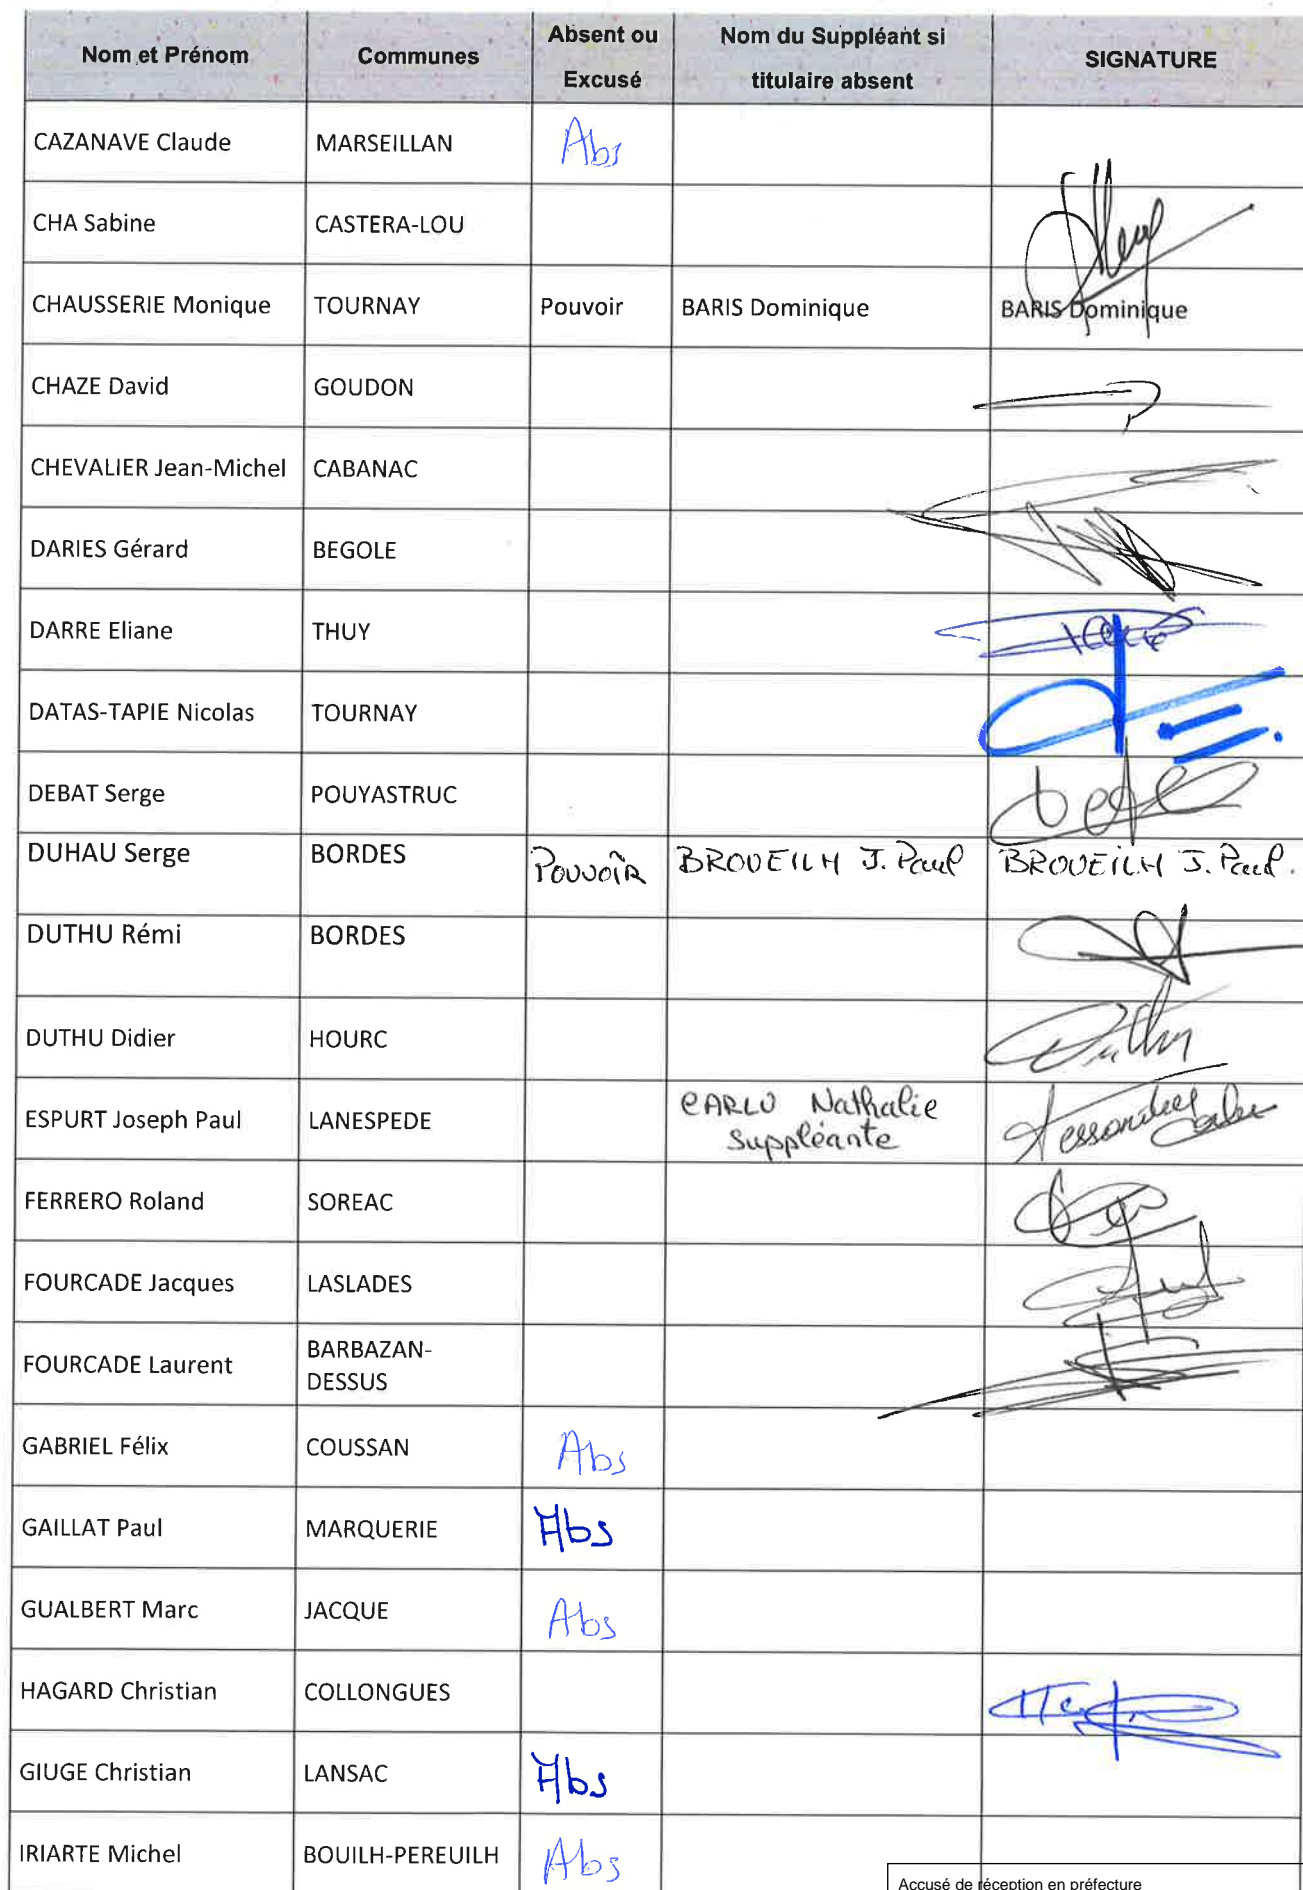 Nom et Prénom Communes Absent ou Excusé Nom du Suppléant si titulaire absent SIGNATURE
CAZANAVE Claude MARSEILLAN Abs
CHA Sabine CASTERA-LOU
CHAUSSERIE Monique TOURNAY Pouvoir BARIS Dominique BARIS Dominique
CHAZE David GOUDON
CHEVALIER Jean-Michel CABANAC
DARIES Gérard BEGOLE
DARRE Eliane THUY
DATAS-TAPIE Nicolas TOURNAY
DEBAT Serge POUYASTRUC
DUHAU Serge BORDES POUVOIR BROUEILH J. Paul BROUEILH J. Paul.
DUTHU Rémi BORDES
DUTHU Didier HOURC Duthu
ESPURT Joseph Paul LANESPEDE CARLU Nathalie
Suppléante
FERRERO Roland SOREAC
FOURCADE Jacques LASLADES
FOURCADE Laurent BARBAZAN-
DESSUS
GABRIEL Félix COUSSAN Abs
GAILLAT Paul MARQUERIE Abs
GUALBERT Marc JACQUE Abs
HAGARD Christian COLLONGUES
GIUGE Christian LANSAC Abs
IRIARTE Michel BOUILH-PEREUILH Abs
Accusé de réception en préfecture